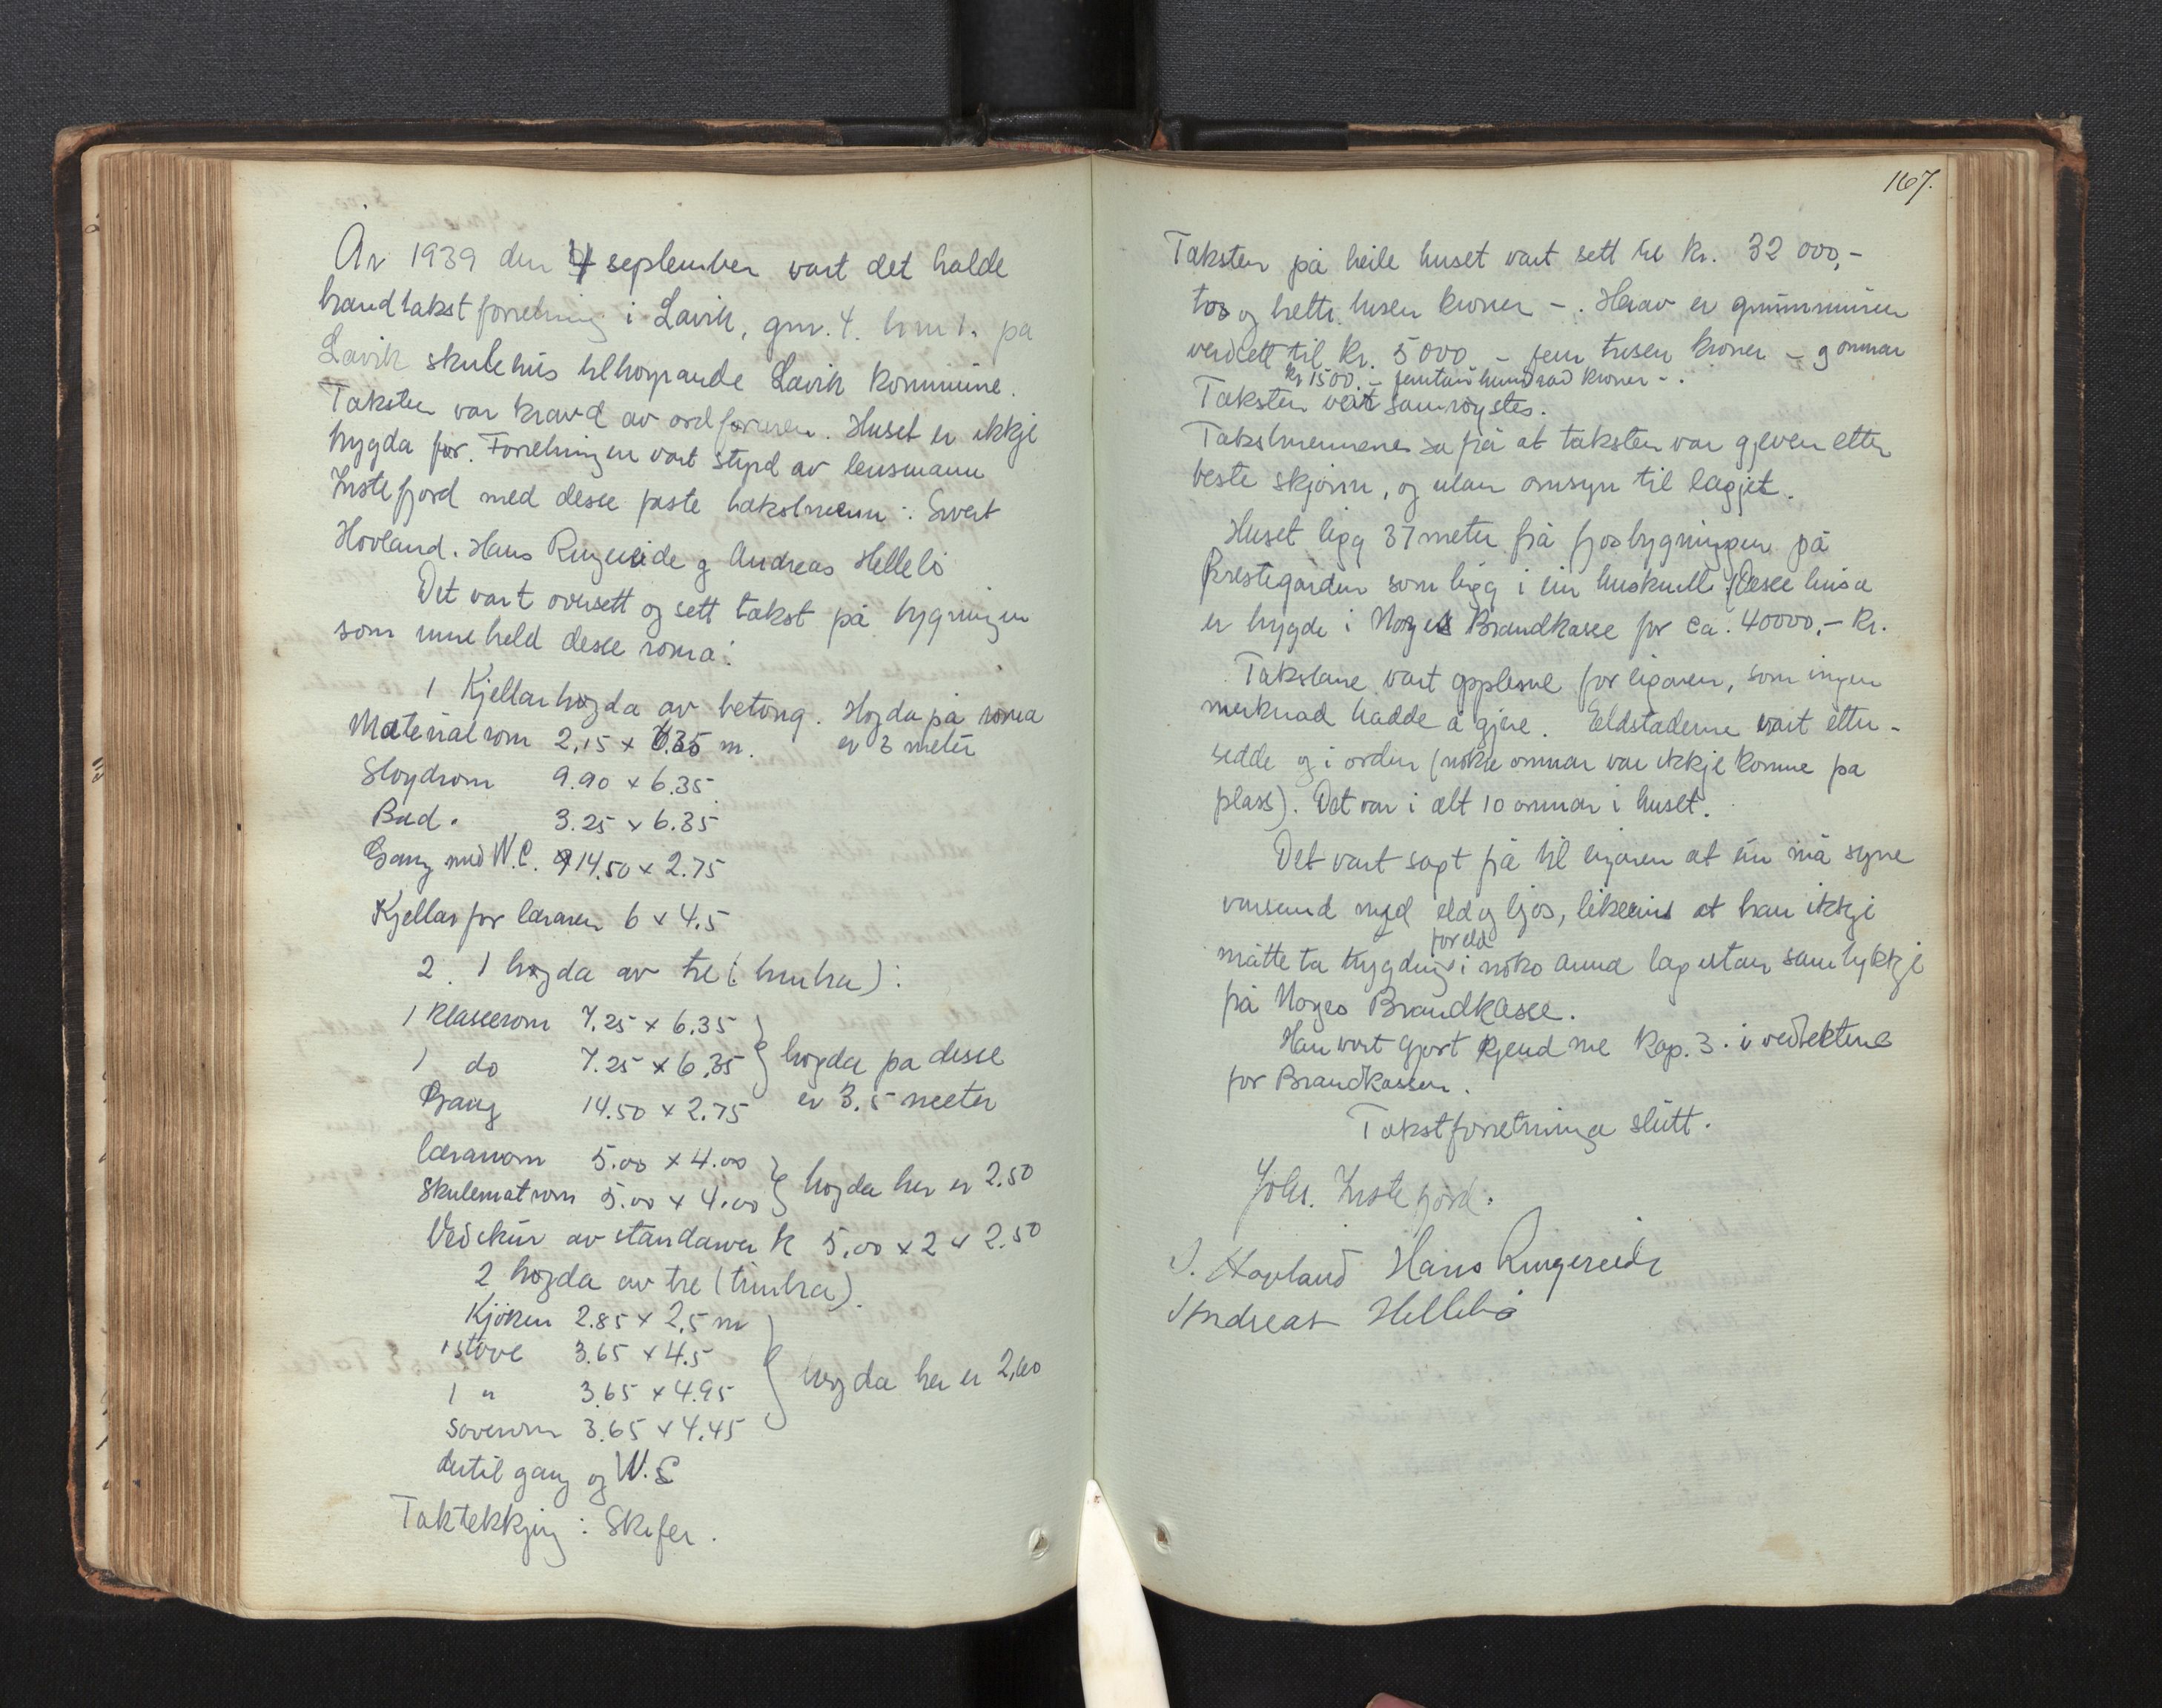 År 1939 den 4 september vart det halde
brandtakstforretning i Lavik, gnr. 4. bnr 1. på
Lavik skulehus tilhøyrande Lavik kommune.
Taksten var kravd av ordføraren. Huset er ikkje
trygda før. Forretningen vart styrd av lensmann
Instefjord med desse faste takstmenn: Sivert
Hovland. Hans Ringereide og Andreas Hellebø
Det vart oversett og sett takst på bygningen
som inneheld desse roma:
1 Kjellarhøgda av betong. Høgda på roma
Materialrom 2,15 x 6.35 m. er 3 meter
Sløydrom 9.90 x 6.35.
Bad. 3.25 x 6.35
Gang med W.C. 14.50 x 2.75
Kjellar for læraren 6 x 4.5
2. 1 høgda av tre (timbra):
1 Klasserom 7.25 x 6.35
1 do 7.25 x 6.35 høgda på desse
Gang 14.50 x 2.75 er 3.5 meter
lærarrom 5.00 x 4.00
Skulematrom 5.00 x 4.00 høgda her er 2.50
Vedskur av standarverk 5.00 x 2 x 2.50
2 høgda av tre (timbra).
Kjöken 2.85 x 2.5 m
1 stove 3.65 x 4.5
1 " 3.65 x 4.95 høgda her er 2,60
Soverom 3.65 x 4.45
dertil gang og W.C
Taktekkjing: Skifer.
167.
Taksten på heile huset vart sett til kr. 32 000,-
to og tretti tusen kroner -. Herav er grunnmuren
verdsett til kr. 5000 - fem tusen kroner - g omnar
kr 1500. - femtan hundrad kroner -.
Taksten vart samrøystes.
Takstmennene sa frå at taksten var gjeven etter
beste skjønn, og utan omsyn til lagjet.
Huset ligg 37 meter frå fjosbygningen på
Prestegarden som ligg i ein husknell. (Desse husa
er trygde i Norges Brandkasse for ca. 40000,- kr.
Takstane vart opplesne for eigaren, som ingen
merknad hadde å gjere. Eldstaderne vart etter-
sedde og i orden (nokre omnar var ikkje komne på
plass). Det var i alt 10 omnar i huset.
Det vart sagt frå til eigaren at ein må syne
varsemd med eld og ljos, likeeins at han ikkje
for eld
måtte ta trygding i noko anna lag utan samtykkje
frå Norges Brandkasse.
Han vart gjort kjend me kap. 3. i vedtektene
for Brandkassen.
Takstforretninga slutt.
Johs. Instefjord.
S. Hovland Hans Ringereide
Andreas Hellebø